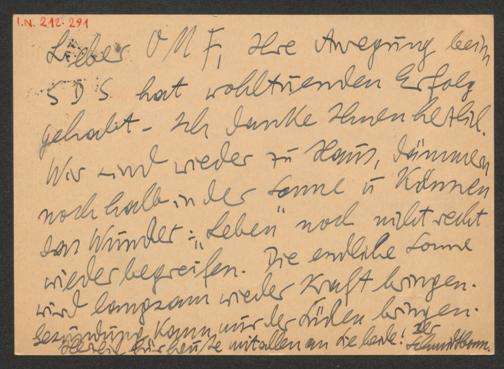 I.N. 212.291
Lieber OMF, Ihre Anregung beim
SDS hat wohltuenden Erfolg
gehabt – Ich danke Ihnen herzlich.
Wir sind wieder zu Haus, dämmern
noch halb in der Sonne u können
das Wunder: "Leben" noch nicht recht
wieder begreifen. Die endliche Sonne
wird langsam wieder Kraft bringen.
Gesundung kann nur der Süden bringen.
für heute mit allen an die beide! Ihr
Schmidtbonn.